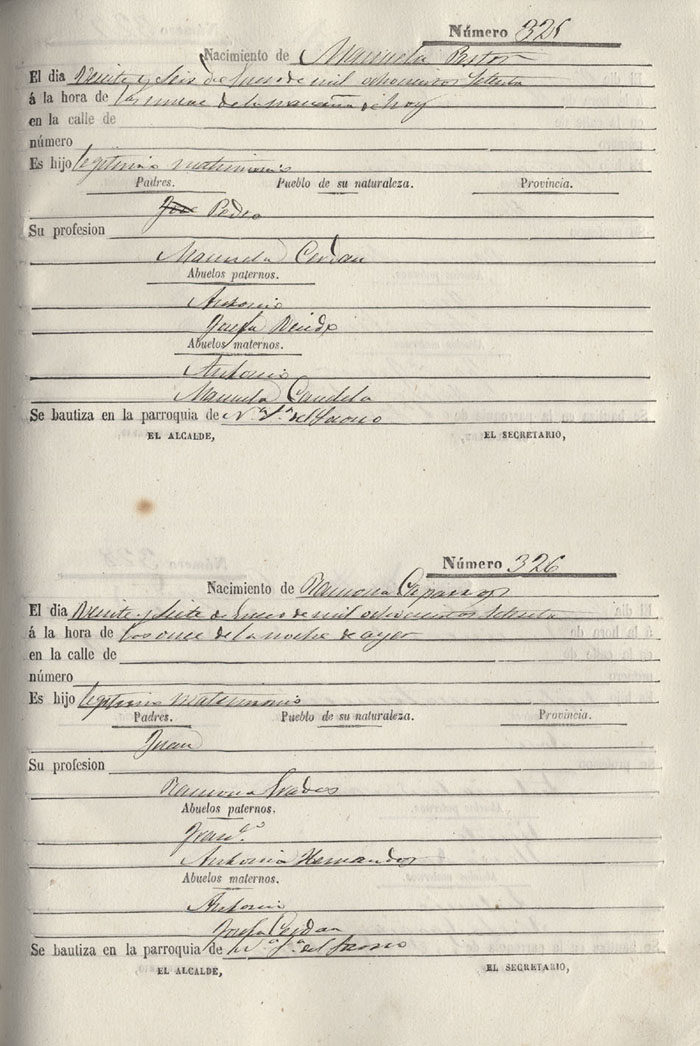 Número 325
Nacimiento de Manuela Pastor
El dia Veinte y seis de Enero de mil ochocientos setenta
á la hora de las nueve de la mañana de hoy
en la calle de
número
Es hijo legitimo matrimonio
Padres. Pueblo de su naturaleza. Provincia.
José Pedro
Su profesion
Manuela Cerdan
Abuelos paternos.
Antonio
Josefa
Abuelos maternos.
Antonio
Manuela Candela
Se bautiza en la parroquia de Nª Sª del Socorro
EL ALCALDE, EL SECRETARIO,
Número 326
Nacimiento de Ramona Caparros
El dia Veinte y siete de Enero de mil ochocientos setenta
á la hora de las once de la noche de ayer
en la calle de
número
Es hijo legitimo matrimonio
Padres. Pueblo de su naturaleza. Provincia.
Juan
Su profesion
Ramona
Abuelos paternos.
Franco.
Antonia Hernandez
Abuelos maternos.
Antonio
Josefa Cerdan
Se bautiza en la parroquia de Nª Sª del Socorro
EL ALCALDE, EL SECRETARIO,